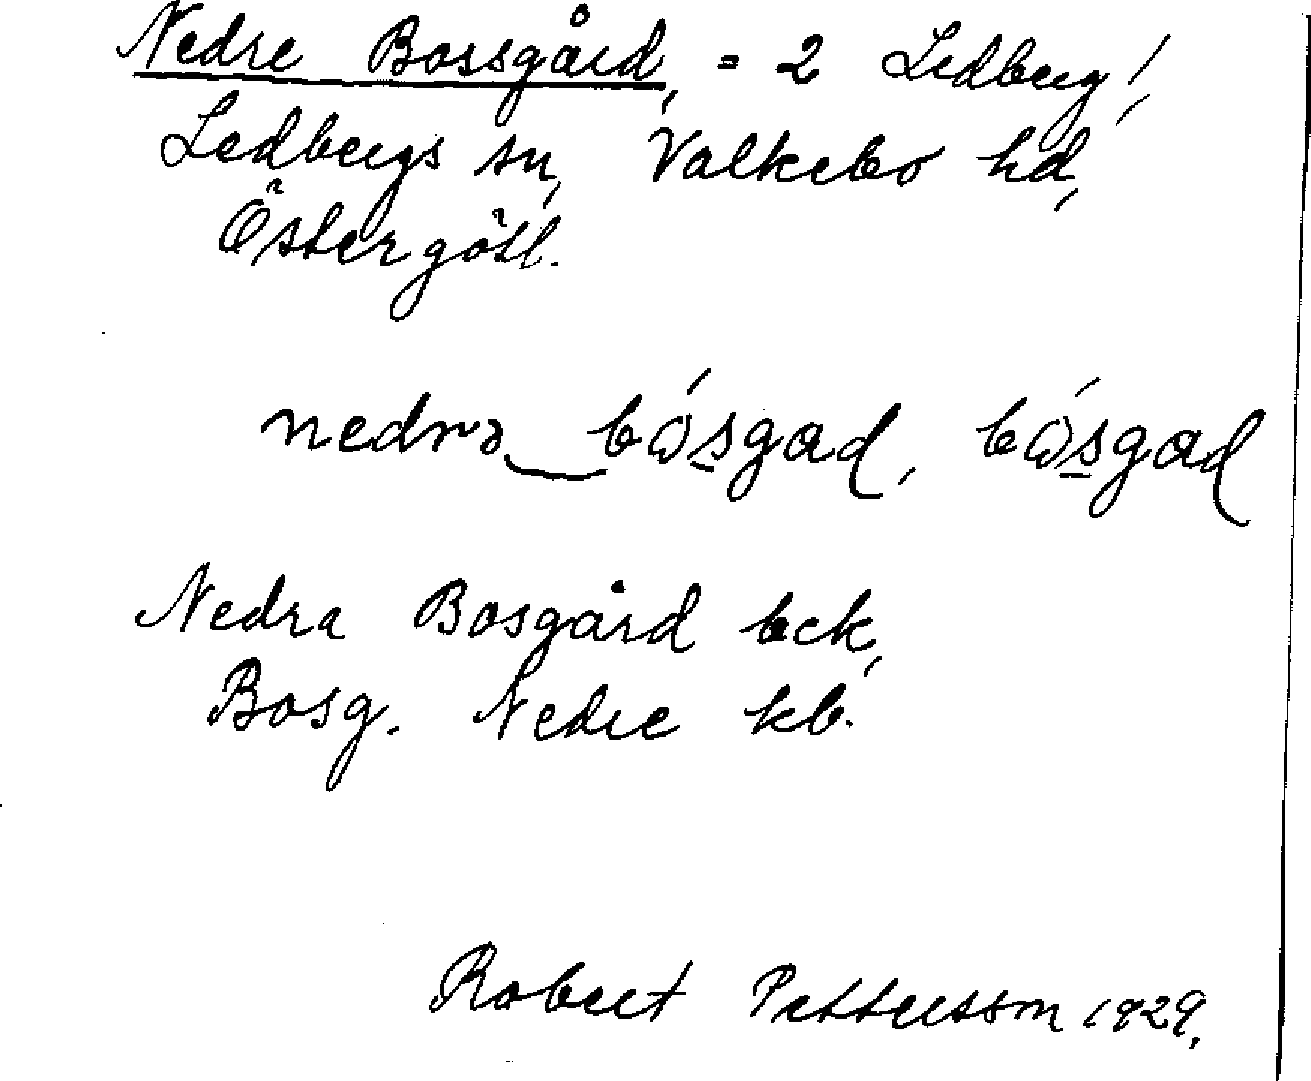 Nedre Bossgård, = 2 Ledberg!,
Ledbergs sn, Valkebo hd,
Östergötl.
nedrə bώsgad, bώsgad
Nedra Bosgård bck,
Bosg. Nedre kb.
Robert Pettersson 1929.